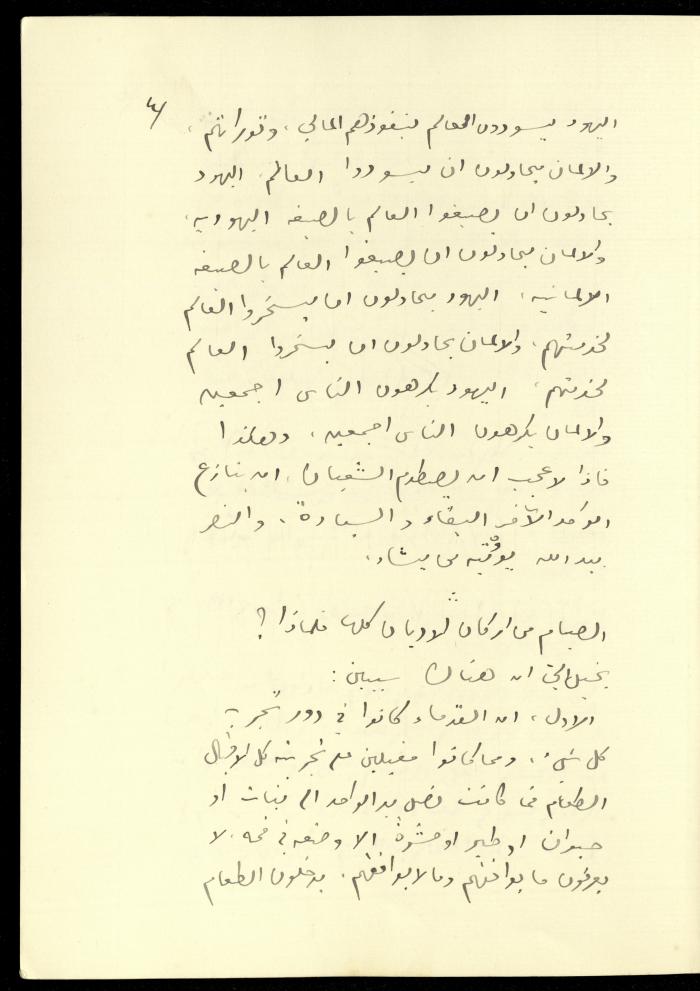 ٤
اليهود يسودون العالم بنفوذهم المالي، وتوراتهم،
والالمان يحاولون ان يسودوا العالم. اليهود
يحاولون ان يصبغوا العالم بالصبغة اليهودية،
والالمان يحاولون ان يصبغوا العالم بالصبغه
الالمانيه، اليهود يحاولون ان يسخروا العالم
لخدمتهم، والالمان يحاولون ان يسخروا العالم
لخدمتهم، اليهود يكرهون الناس اجمعين
والالمان يكرهون الناس اجمعين، وهكذا
فاذا لا عجب ان يصطدم الشعبان، ان ينازع
الواحد الآخر البقاء والسيادة. والنصر
بيد الله يؤتيه من يشاء.
الصيام من اركان الاديان كلها فلماذا؟
يخيل اليّ ان هناك سببين:
الاول، ان القدماء كانوا في دور تجربة
كل شيء، ومما كانوا مقبلين على تجربته كل الاقبال
الطعام فما كانت تصل يد الواحد الى نبات او
حيوان او طير او حشرة الا وضعه في فمه. لا
يعرفون ما يوافقهم وما لا يوافقهم. يدخلون الطعام